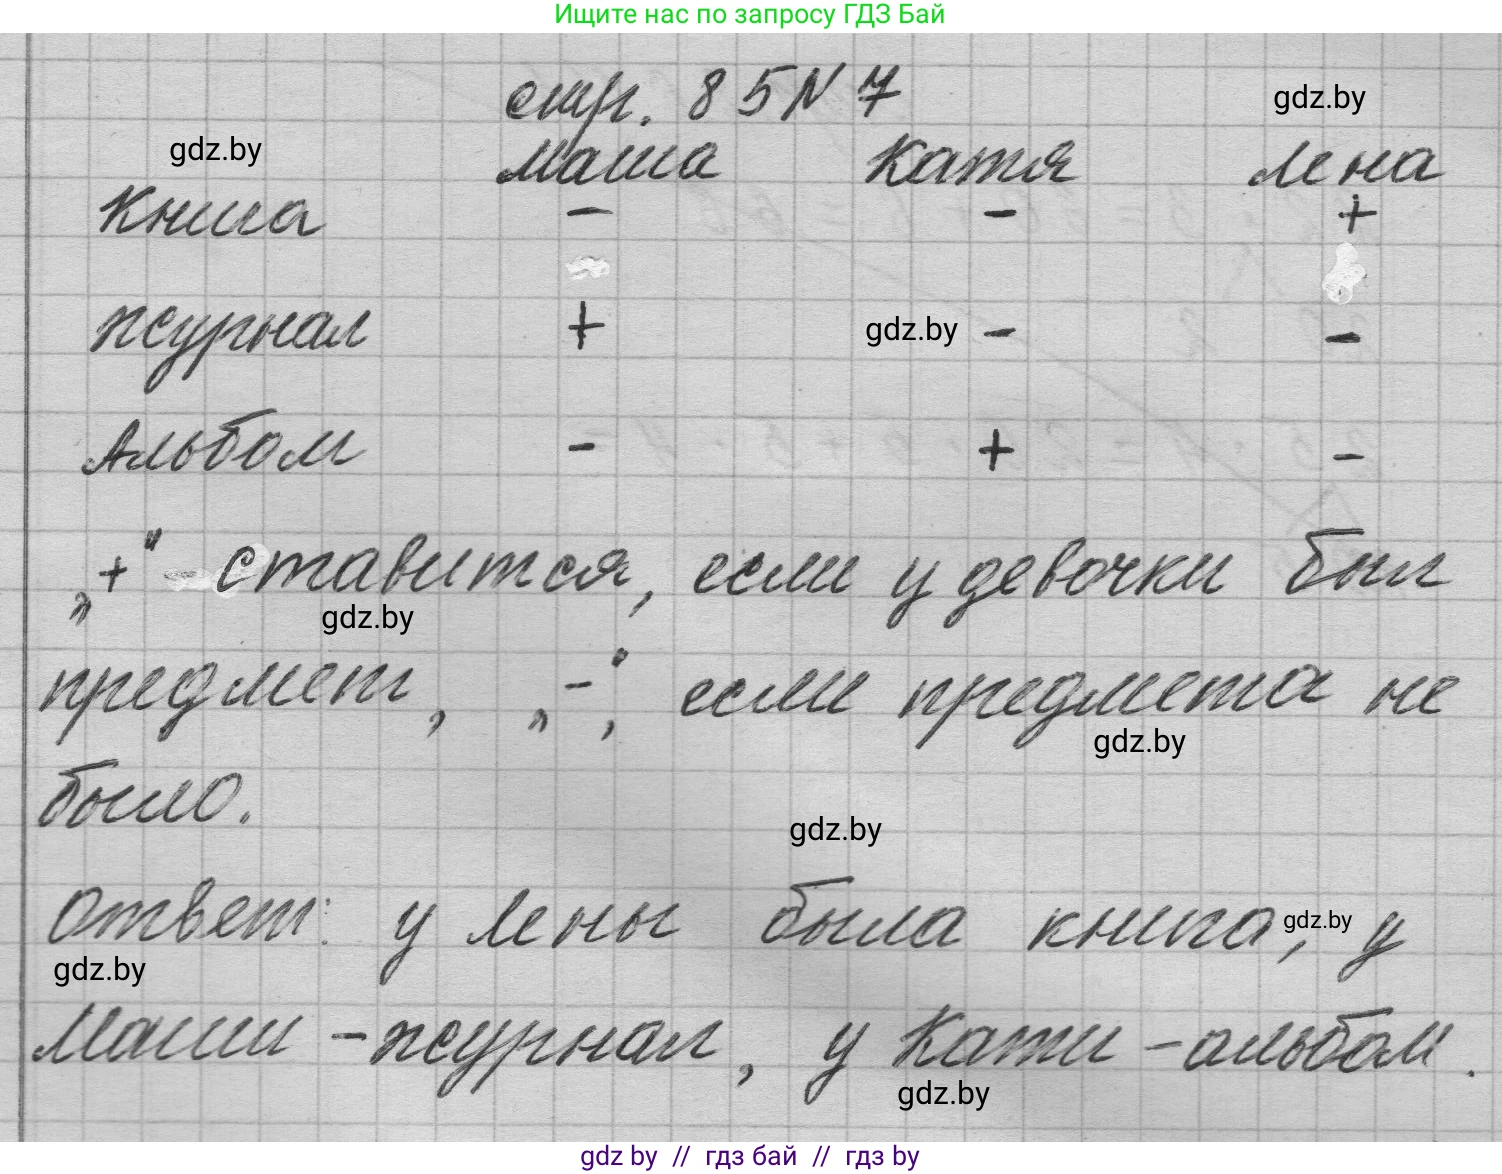 Ищите нас по запросу ГДЗ Бай
стр. 85 N 7
gdz.by
gdz.by
Маша Катя Лена
Книга - - +
журнал + gdz.by - -
Альбом - + -
„+“ - ставится, если у девочки был
gdz.by
предмет, „-“, если предмета не
gdz.by
было.
gdz.by
Ответ: у Лены была книга, gdz.by у
gdz.by
Маши - журнал, у Кати - альбом.
gdz.by
gdz by // гдз бай // гдз by